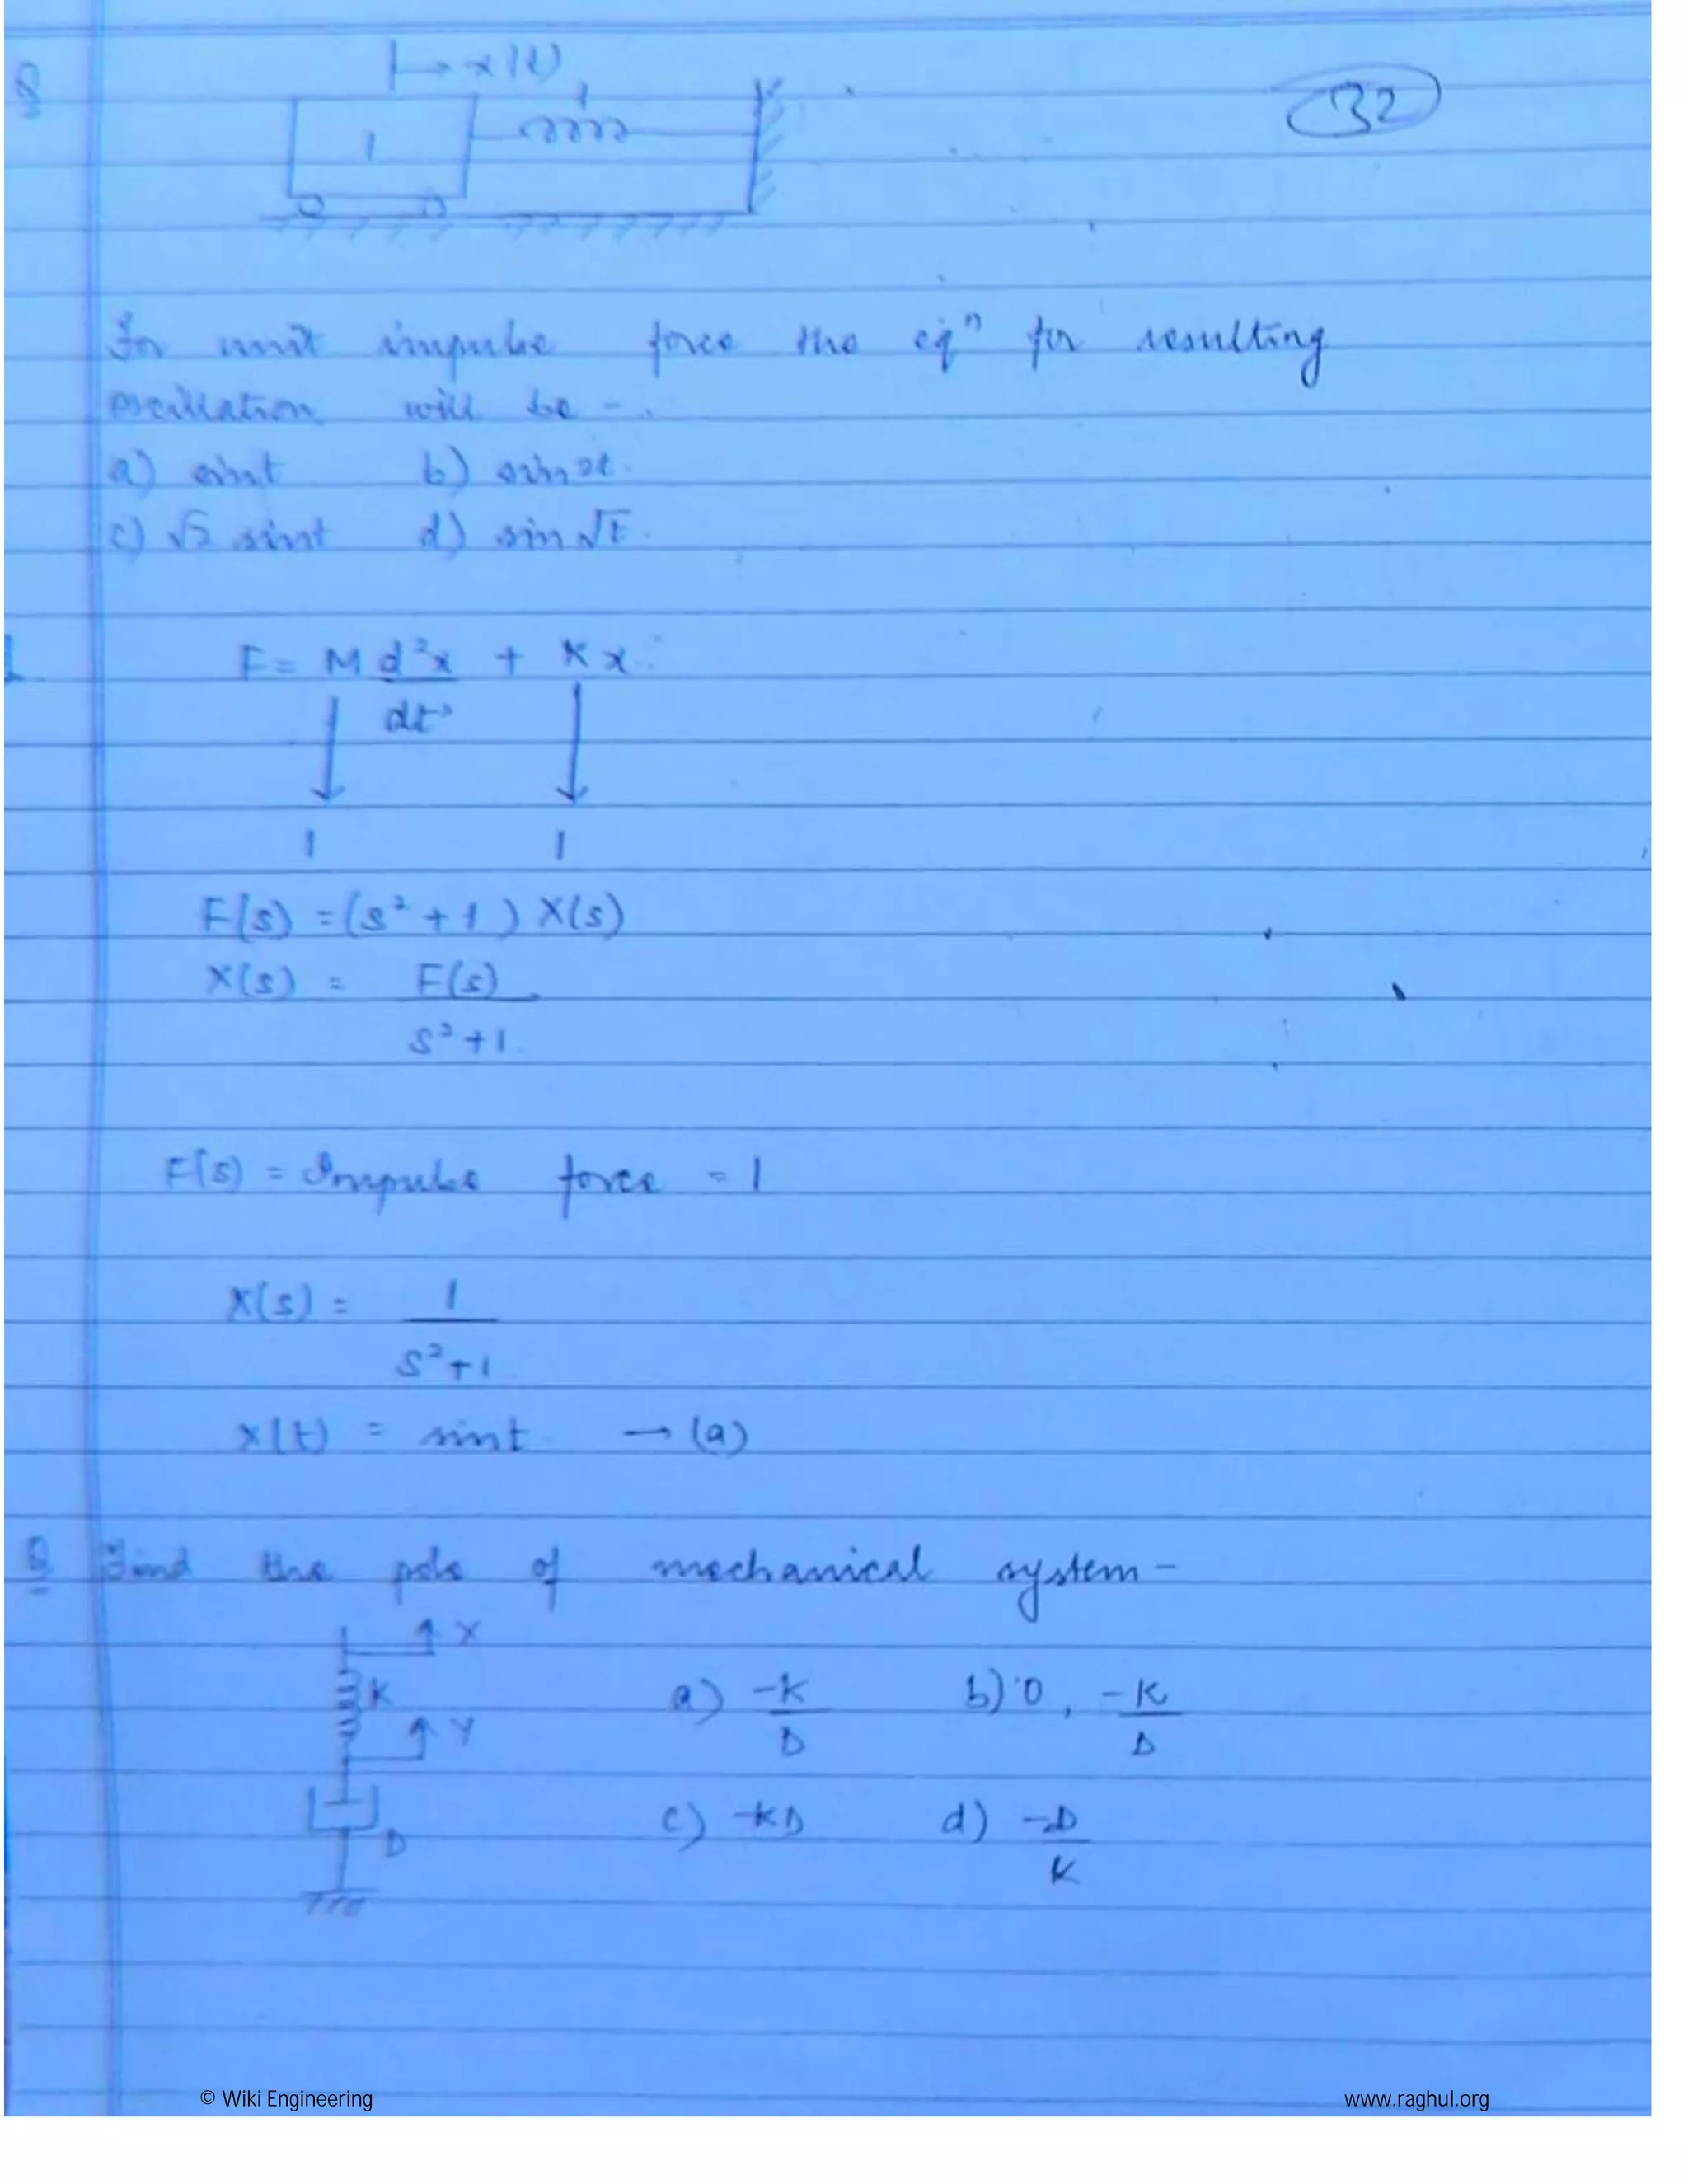 Q
x(t)
32
1
1
For unit impulse force the eqⁿ for resulting
oscillation will be -
a) sint b) sin2t
c) √2 sint d) sin√t
F = M d²x + Kx
dt²
1 1
F(s) = (s² + 1) X(s)
X(s) = F(s)
s²+1
F(s) = Impulse force = 1
X(s) = 1
s²+1
x(t) = sint → (a)
Q Find the pole of mechanical system -
X
K
Y
D
a) -K b) 0, -K
D D
c) -KD d) -D
K
© Wiki Engineering www.raghul.org